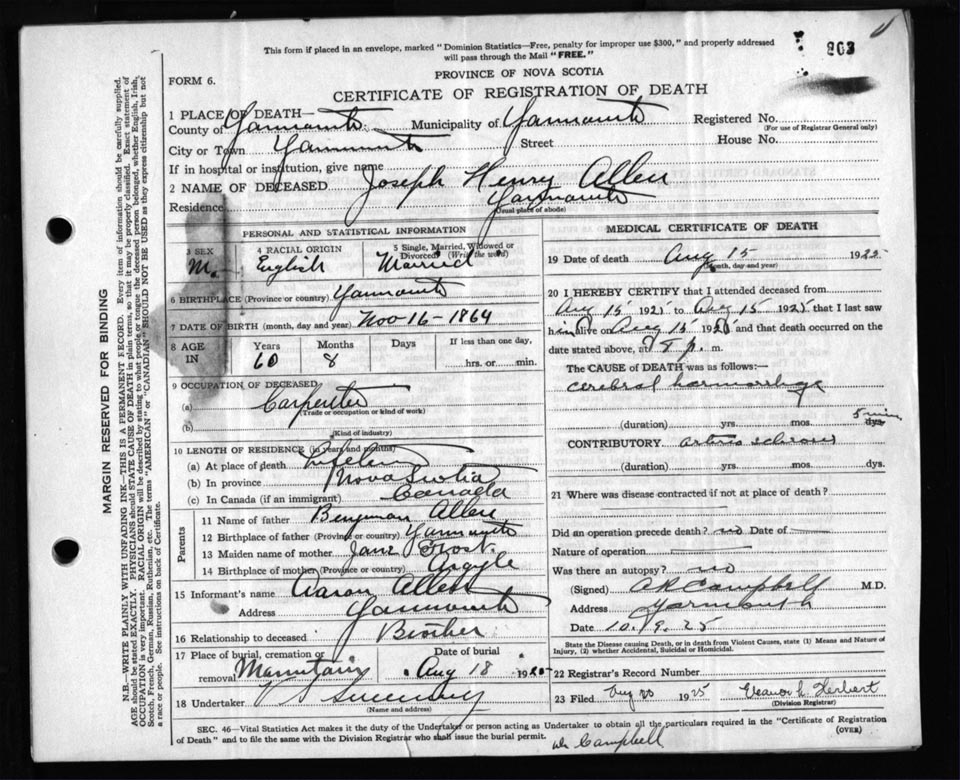 This form if placed in an envelope, marked "Dominion Statistics—Free, penalty for improper use $300," and properly addressed
will pass through the Mail "FREE."
203
FORM 6.
PROVINCE OF NOVA SCOTIA
CERTIFICATE OF REGISTRATION OF DEATH
1 PLACE OF DEATH—
County of Yarmouth Municipality of Yarmouth Registered No.
(For use of Registrar General only)
City or Town Yarmouth Street House No.
If in hospital or institution, give name
2 NAME OF DECEASED Joseph Henry Allen
Residence Yarmouth
(Usual place of abode)
PERSONAL AND STATISTICAL INFORMATION
3 SEX 4 RACIAL ORIGIN 5 Single, Married, Widowed or Divorced (Write the word)
M. English Married
6 BIRTHPLACE (Province or country) Yarmouth
7 DATE OF BIRTH (month, day and year) Nov-16-1864
8 AGE IN Years Months Days If less than one day,
60 8 hrs. or min.
9 OCCUPATION OF DECEASED
(a) Carpenter
(Trade or occupation or kind of work)
(b)
(Kind of industry)
10 LENGTH OF RESIDENCE (in years and months)
(a) At place of death
(b) In province Nova Scotia
(c) In Canada (if an immigrant) Canada
Parents
11 Name of father Benjman Allen
12 Birthplace of father (Province or country) Yarmouth
13 Maiden name of mother Jane Frost
14 Birthplace of mother (Province or country) Argyle
15 Informant's name Aaron Allen
Address Yarmouth
16 Relationship to deceased Brother
17 Place of burial, cremation or removal Date of burial
Aug 18 1925
18 Undertaker Sweeney
(Name and address)
MEDICAL CERTIFICATE OF DEATH
19 Date of death Aug 15 1925
(Month, day and year)
20 I HEREBY CERTIFY that I attended deceased from
Aug 15 1925 to Aug 15 1925 that I last saw
him alive on Aug 15 1925 and that death occurred on
date stated above, at 8 p. m.
The CAUSE of DEATH was as follows:—
cerebral
5 min
(duration) yrs. mos. dys.
CONTRIBUTORY
(duration) yrs. mos. dys.
21 Where was disease contracted if not at place of death?
Did an operation precede death? no Date of
Nature of operation
Was there an autopsy? no
(Signed) Campbell M.D.
Address Yarmouth
Date 25
State the Disease causing Death, or in death from Violent Causes, state (1) Means and Nature of
Injury, (2) whether Accidental, Suicidal or Homicidal.
22 Registrar's Record Number
23 Filed Aug 20 1925 Eleanor L. Herbert
(Division Registrar)
SEC. 46—Vital Statistics Act makes it the duty of the Undertaker or person acting as Undertaker to obtain all the particulars required in the "Certificate of Registration
of Death" and to file the same with the Division Registrar who shall issue the burial permit.
(OVER)
Campbell
MARGIN RESERVED FOR BINDING
N.B.—WRITE PLAINLY WITH UNFADING INK—THIS IS A PERMANENT RECORD. Every item of information should be carefully supplied.
AGE should be stated EXACTLY. PHYSICIANS should STATE CAUSE OF DEATH in plain terms, so that it may be properly classified. Exact statement of
OCCUPATION is very important. RACIAL ORIGIN will be described by stating to what people or tongue the deceased person belonged, whether English, Irish,
Scotch, French, German, Russian, Ruthenian, etc. The terms "AMERICAN" or "CANADIAN" SHOULD NOT BE USED as they express citizenship but not
a race or people. See instructions on back of Certificate.